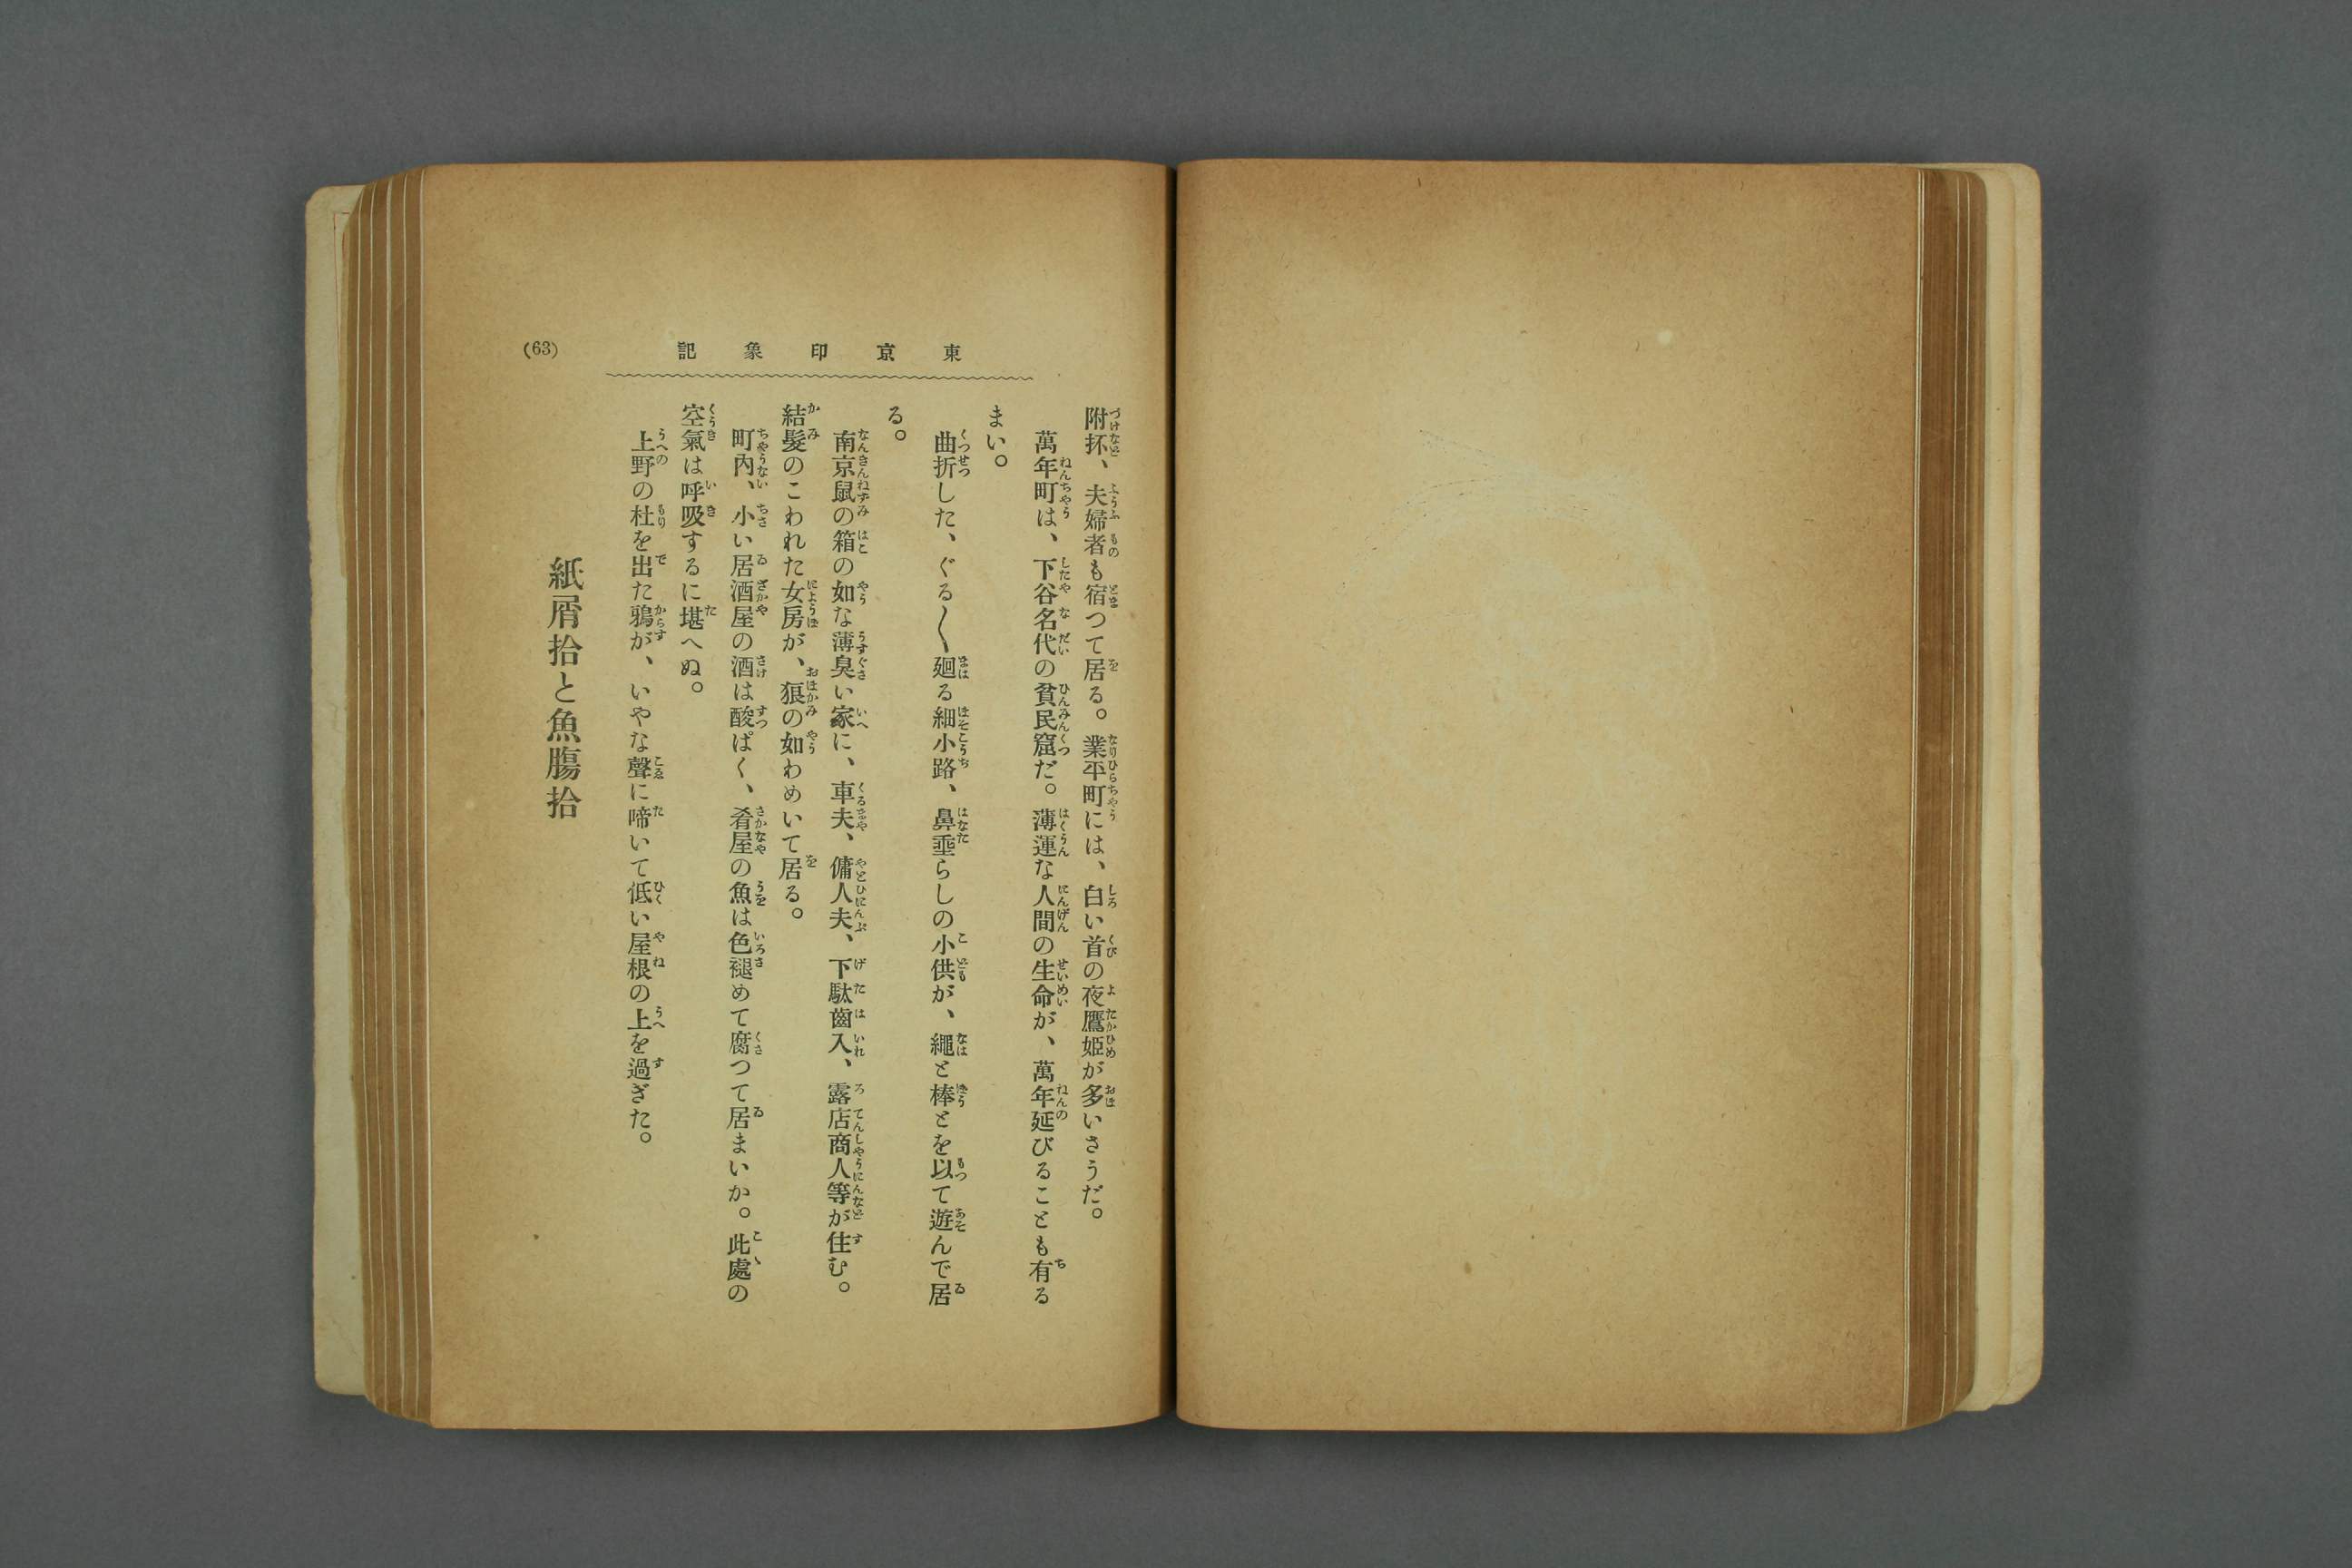 東京印象記
(63)
附抔、夫婦者も宿つて居る。業平町には、白い首の夜鷹姫が多いさうだ。
萬年町は、下谷名代の貧民窟だ。薄運な人間の生命が、萬年延びることも有る
まい。
曲折した、ぐる〱廻る細小路、鼻埀らしの小供が、繩と棒とを以て遊んで居
る。
南京鼠の箱の如な薄臭い家に、車夫、傭人夫、下駄齒入、露店商人等が住む。
結髮のこわれた女房が、狼の如わめいて居る。
町內、小い居酒屋の酒は酸ぱく、肴屋の魚は色褪めて腐つて居まいか。此處の
空氣は呼吸するに堪へぬ。
上野の杜を出た鴉が、いやな聲に啼いて低い屋根の上を過ぎた。
紙屑拾と魚膓拾